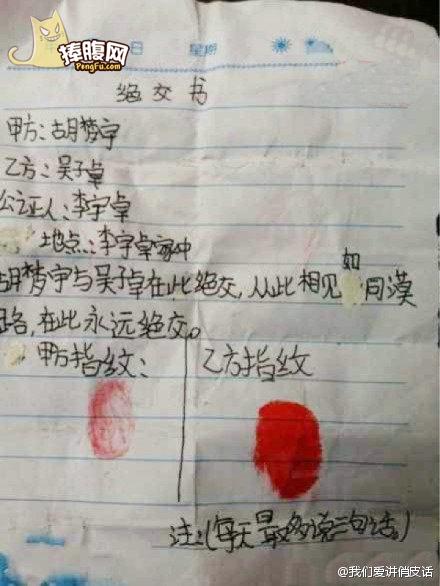 捧腹网
PengFu.com
日 星期
绝交书
甲方:胡梦宇
乙方:吴子卓
公证人:李宇卓
地点:李宇卓家中
胡梦宇与吴子卓在此绝交,从此相见如同漠
路,在此永远绝交。
甲方指纹:
乙方指纹
注:(每天最多说三句话。)
@我们爱讲俏皮话